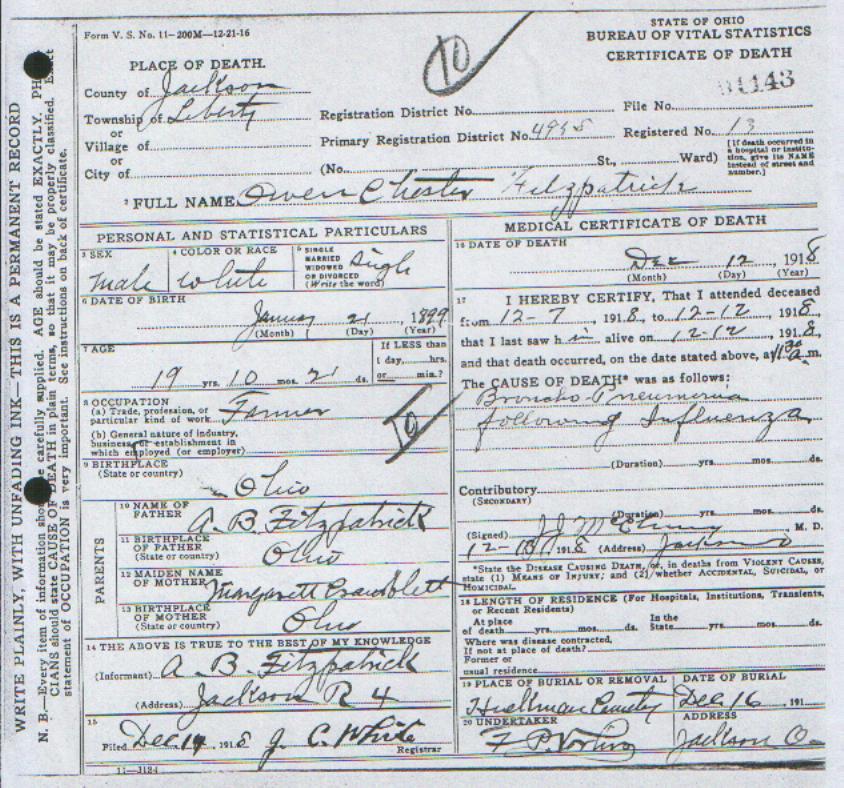 Form V. S. No. 11—200M—12-21-16
10
STATE OF OHIO
BUREAU OF VITAL STATISTICS
CERTIFICATE OF DEATH
PLACE OF DEATH.
County of Jackson
Township of Liberty
or
Village of
or
City of
Registration District No.
File No. 81143
Primary Registration District No. 4985
Registered No. 13
(No. St., Ward)
[If death occurred in a hospital or institution, give its NAME instead of street and number.]
2 FULL NAME Owen Chester Fitzpatrick
PERSONAL AND STATISTICAL PARTICULARS
3 SEX
male
4 COLOR OR RACE
white
5 SINGLE
MARRIED
WIDOWED
OR DIVORCED
(Write the word)
Single
6 DATE OF BIRTH
January 21, 1899
(Month) (Day) (Year)
7 AGE
19 yrs. 10 mos. 21 ds.
If LESS than
1 day, hrs.
or min.?
8 OCCUPATION
(a) Trade, profession, or
particular kind of work Farmer
(b) General nature of industry,
business, or establishment in
which employed (or employer)
10
9 BIRTHPLACE
(State or country)
Ohio
PARENTS
10 NAME OF
FATHER A. B. Fitzpatrick
11 BIRTHPLACE
OF FATHER
(State or country) Ohio
12 MAIDEN NAME
OF MOTHER Margarett
13 BIRTHPLACE
OF MOTHER
(State or country) Ohio
14 THE ABOVE IS TRUE TO THE BEST OF MY KNOWLEDGE
(Informant) A. B. Fitzpatrick
(Address) Jackson R 4
15
Filed Dec. 14 1918 J. C. White
Registrar
11—3184
MEDICAL CERTIFICATE OF DEATH
16 DATE OF DEATH
Dec 12 1918
(Month) (Day) (Year)
17 I HEREBY CERTIFY, That I attended deceased
from 12-7, 1918, to 12-12 1918
that I last saw h im alive on 12-12, 1918,
and that death occurred, on the date stated above, at m.
The CAUSE OF DEATH* was as follows:
Broncho-Pneumonia
following Influenza
(Duration) yrs. mos. ds.
Contributory
(SECONDARY)
(Duration) yrs. mos. ds.
(Signed) M. D.
1918 (Address) Jackson O
*State the DISEASE CAUSING DEATH, or, in deaths from VIOLENT CAUSES,
state (1) MEANS OF INJURY; and (2) whether ACCIDENTAL, SUICIDAL, or
HOMICIDAL.
18 LENGTH OF RESIDENCE (For Hospitals, Institutions, Transients,
or Recent Residents)
At place
of death yrs. mos. ds.
In the
State yrs. mos. ds.
Where was disease contracted,
If not at place of death?
Former or
usual residence
19 PLACE OF BURIAL OR REMOVAL
Cemetery
DATE OF BURIAL
Dec 16 191
20 UNDERTAKER
ADDRESS
Jackson O.
WRITE PLAINLY, WITH UNFADING INK—THIS IS A PERMANENT RECORD
N. B.—Every item of information should be carefully supplied. AGE should be stated EXACTLY. PH
CIANS should state CAUSE OF DEATH in plain terms, so that it may be properly classified. Exact
statement of OCCUPATION is very important. See instructions on back of certificate.